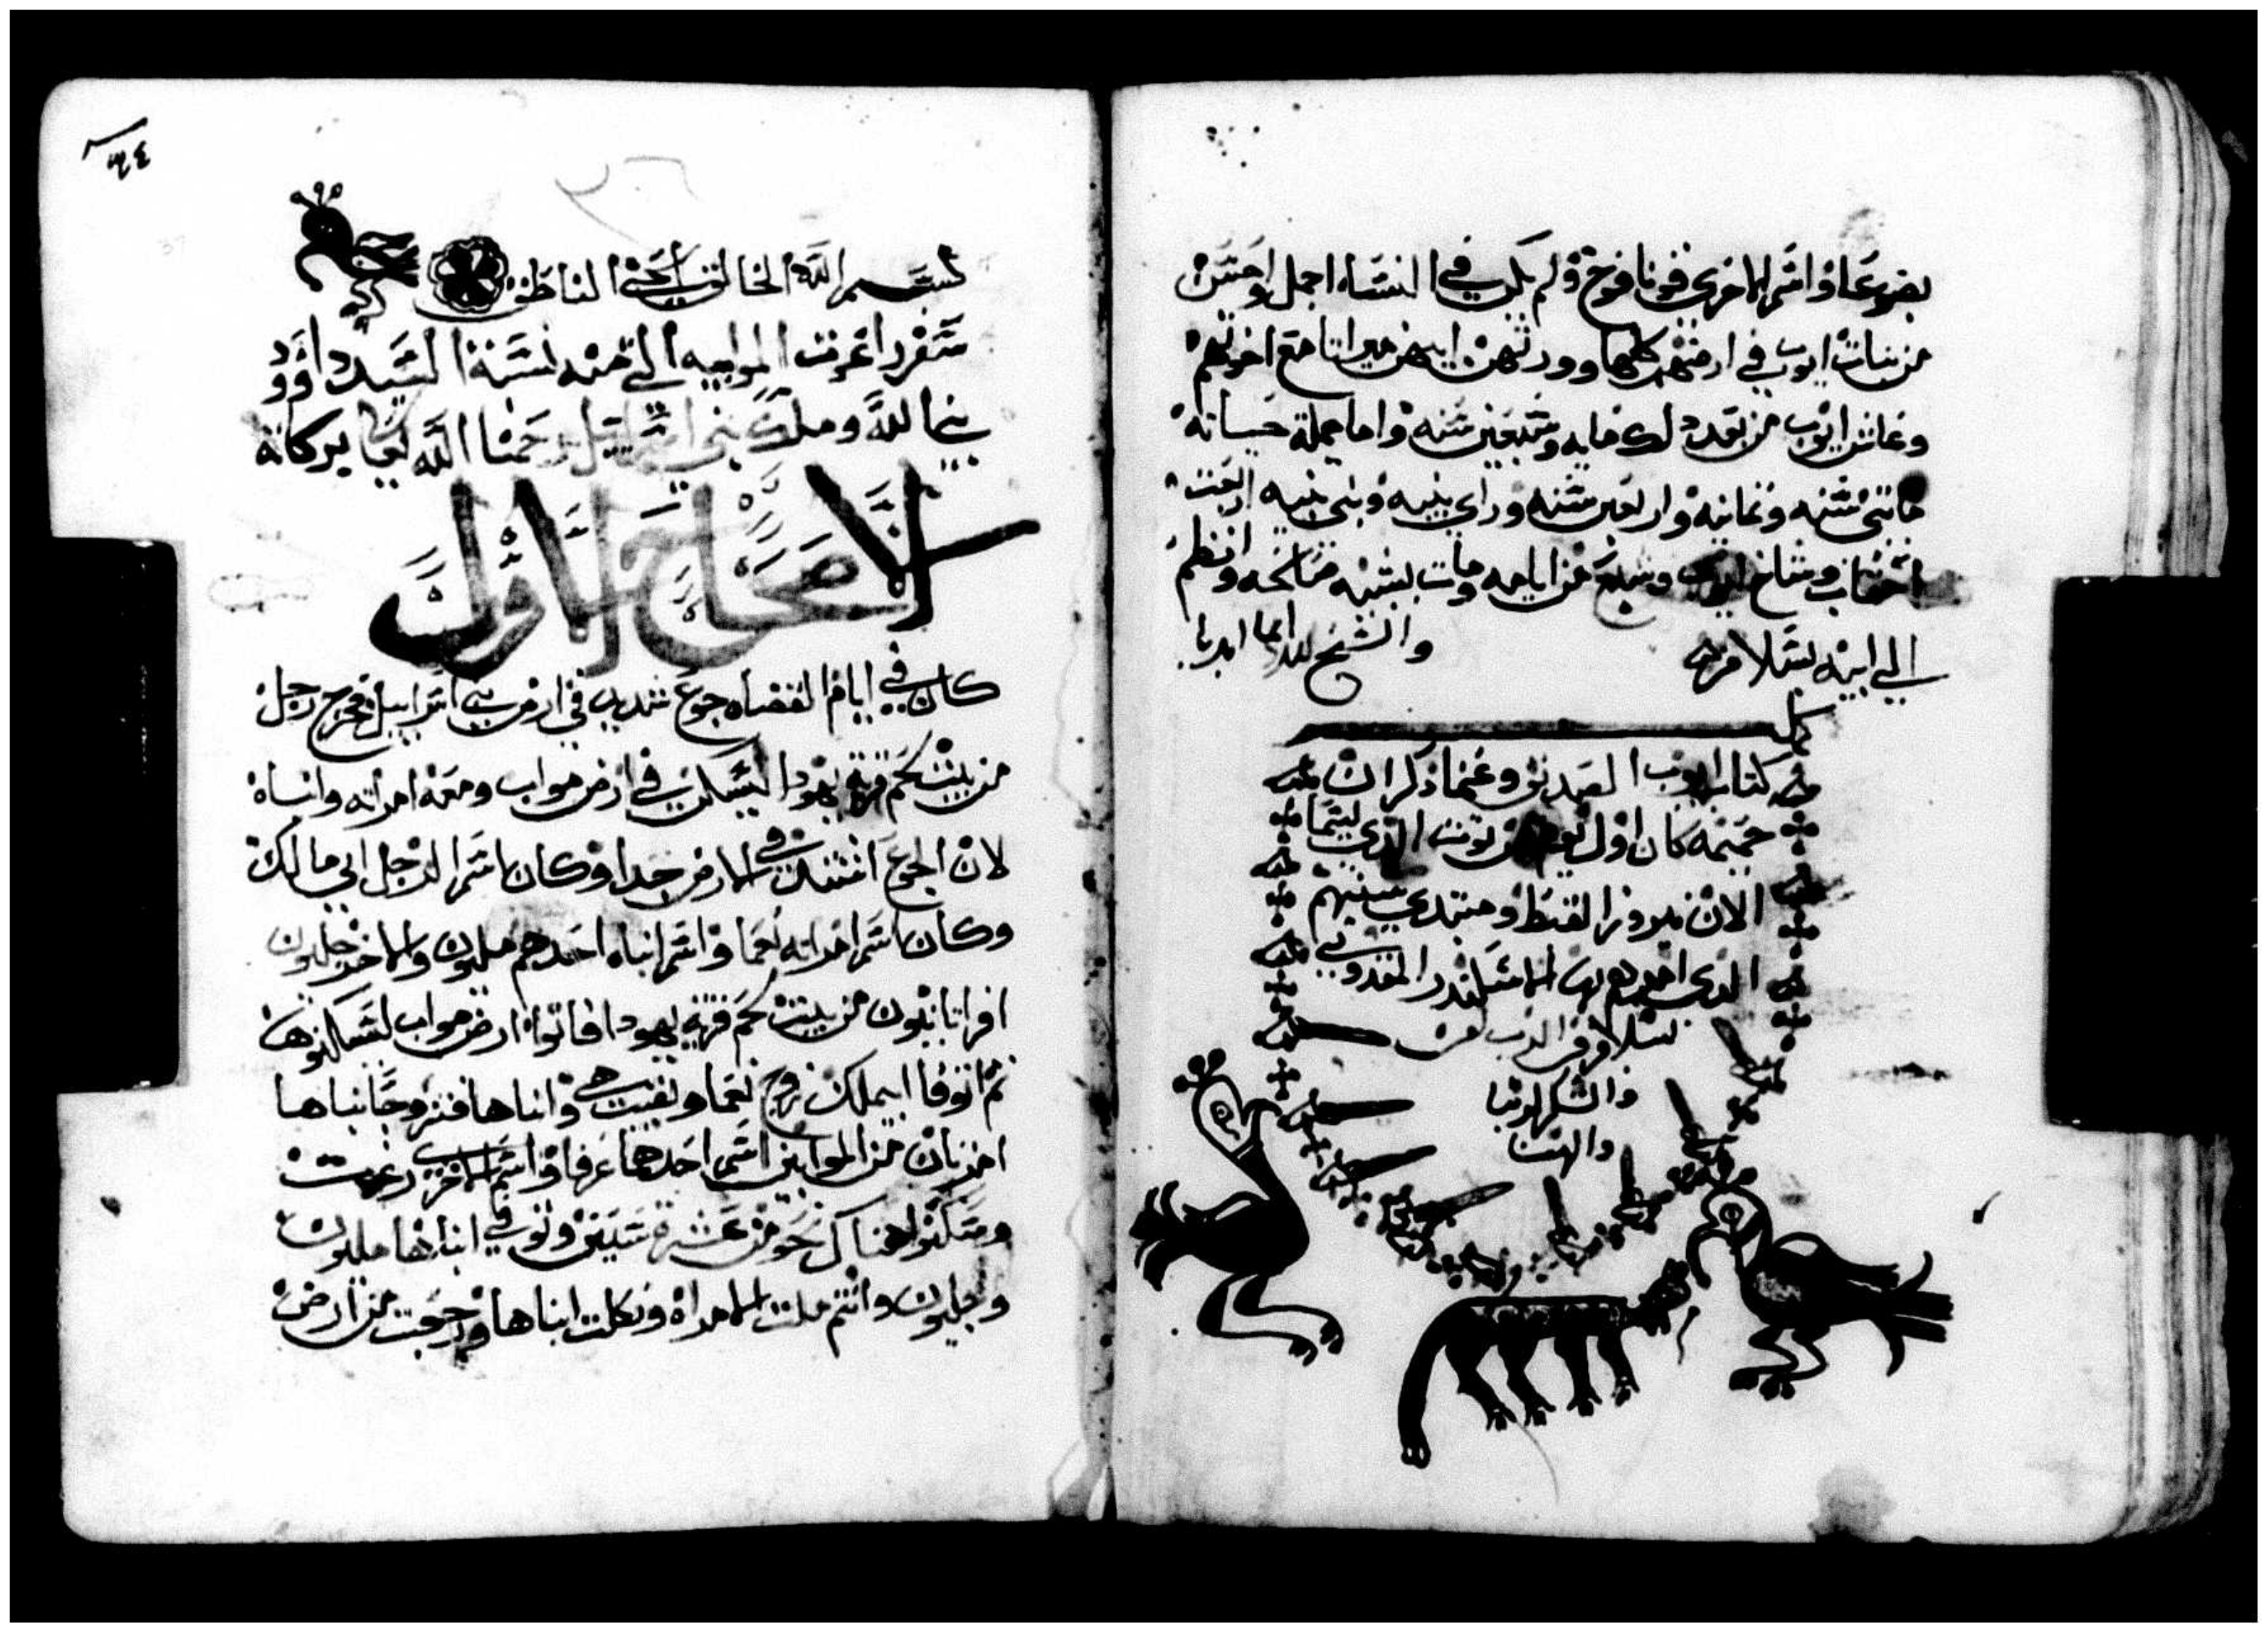 بضوعا واسم الاخري قونا فوخ ولم يكن في النساء اجمل واحسن
من بنات ايوب في ارضهم كلها وورثهن ابيهن ميراثا مع اخوتهم
وعاش ايوب من بعد دلك مايه وسبعين سنه واما جملة حياته
مايتي سنه وثمانيه واربعين سنه وراي بنيه وبني بنيه اربعت
احقاب وشاخ ايوب وشبع من ايامه ومات بشيبه صالحه وانظم
الي ابيه بسلامه والسبح لله دايما ابديا
كمل
كتاب ايوب الصديق وعندما ذكر ان
ختمه كان اول يوم من توت الذي يسما
الان نيروز القبط ومبتدي سنينهم
الذي اخدوه من الاسكندر المقدوني
بسلام من الرب امين
والشكر لربنا
والهنا
٣٤
بسم الله الخالق الحي الناطق
سفر راعوت الموابيه التي منه نسبة السيد داوود
نبي الله وملك بني اسراييل رحمنا الله تعالي ببركاته
الاصحاح الاول
كان في ايام القضاه جوع شديد في ارض بني اسراييل فخرج رجل
من بيت لحم قرية يهودا ليسكن في ارض مواب ومعه امراته وابناه
لان الجوع اشتد في الارض جدا وكان اسم الرجل ابي مالك
وكان اسم امراته نعما واسم ابناه احدهم ملون والاخر جليون
افراتانيون من بيت لحم قرية يهودا فاتوا ارض مواب ليسكنوها
ثم اتوفا ابيملك زوج نعما وبقيت هي وابناها فتزوجا ابناها
امراتان من الموابين اسم احدهما عرفا واسم الاخري رعوت
وسكنوا هناك نحو من عشرة سنين وتوفي ابناها ملون
وجليون واتتملت الامراه وتكلت ابناها ورجعت من ارض